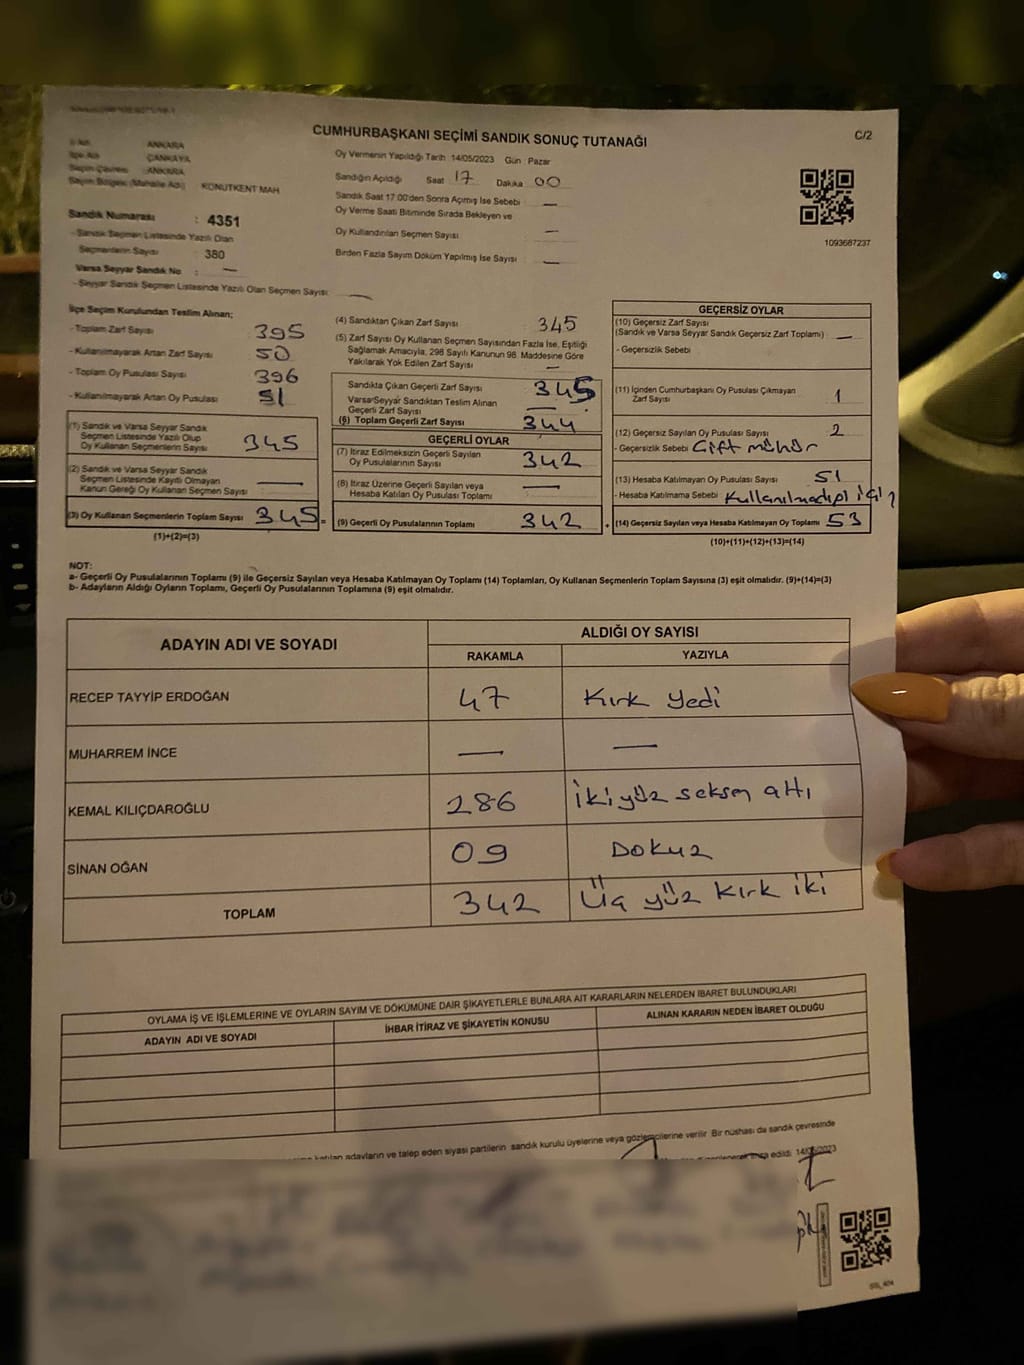 CUMHURBAŞKANI SEÇİMİ SANDIK SONUÇ TUTANAĞI
C/2
İli Adı : ANKARA
İlçe Adı : ÇANKAYA
Seçim Çevresi : ANKARA
Seçim Bölgesi (Mahalle Adı) : KONUTKENT MAH
Sandık Numarası : 4351
- Sandık Seçmen Listesinde Yazılı Olan
Seçmenlerin Sayısı : 380
Varsa Seyyar Sandık No : —
- Seyyar Sandık Seçmen Listesinde Yazılı Olan Seçmen Sayısı: —
Oy Vermenin Yapıldığı Tarih 14/05/2023 Gün : Pazar
Sandığın Açıldığı Saat 17 Dakika 00
Sandık Saat 17:00'den Sonra Açmış İse Sebebi —
Oy Verme Saati Bitiminde Sırada Bekleyen ve
Oy Kullandırılan Seçmen Sayısı —
Birden Fazla Sayım Döküm Yapılmış İse Sayısı —
1093687237
İlçe Seçim Kurulundan Teslim Alınan;
- Toplam Zarf Sayısı 395
- Kullanılmayarak Artan Zarf Sayısı 50
- Toplam Oy Pusulası Sayısı 396
- Kullanılmayarak Artan Oy Pusulası 51
(1) Sandık ve Varsa Seyyar Sandık
Seçmen Listesinde Yazılı Olup
Oy Kullanan Seçmenlerin Sayısı 345
(2) Sandık ve Varsa Seyyar Sandık
Seçmen Listesinde Kayıtlı Olmayan
Kanun Gereği Oy Kullanan Seçmen Sayısı —
(3) Oy Kullanan Seçmenlerin Toplam Sayısı 345 =
(1)+(2)=(3)
(4) Sandıktan Çıkan Zarf Sayısı 345
(5) Zarf Sayısı Oy Kullanan Seçmen Sayısından Fazla İse, Eşitliği
Sağlamak Amacıyla, 298 Sayılı Kanunun 98. Maddesine Göre
Yakılarak Yok Edilen Zarf Sayısı —
Sandıkta Çıkan Geçerli Zarf Sayısı 345
Varsa Seyyar Sandıktan Teslim Alınan
Geçerli Zarf Sayısı —
(6) Toplam Geçerli Zarf Sayısı 344
GEÇERLİ OYLAR
(7) İtiraz Edilmeksizin Geçerli Sayılan
Oy Pusulalarının Sayısı 342
(8) İtiraz Üzerine Geçerli Sayılan veya
Hesaba Katılan Oy Pusulası Toplamı —
(9) Geçerli Oy Pusulalarının Toplamı 342
GEÇERSİZ OYLAR
(10) Geçersiz Zarf Sayısı
(Sandık ve Varsa Seyyar Sandık Geçersiz Zarf Toplamı) —
- Geçersizlik Sebebi
(11) İçinden Cumhurbaşkanı Oy Pusulası Çıkmayan
Zarf Sayısı 1
(12) Geçersiz Sayılan Oy Pusulası Sayısı 2
- Geçersizlik Sebebi Çift mühür
(13) Hesaba Katılmayan Oy Pusulası Sayısı 51
- Hesaba Katılmama Sebebi Kullanılmadığı için
(14) Geçersiz Sayılan veya Hesaba Katılmayan Oy Toplamı 53
(10)+(11)+(12)+(13)=(14)
NOT:
a- Geçerli Oy Pusulalarının Toplamı (9) ile Geçersiz Sayılan veya Hesaba Katılmayan Oy Toplamı (14) Toplamları, Oy Kullanan Seçmenlerin Toplam Sayısına (3) eşit olmalıdır. (9)+(14)=(3)
b- Adayların Aldığı Oyların Toplamı, Geçerli Oy Pusulalarının Toplamına (9) eşit olmalıdır.
ADAYIN ADI VE SOYADI
ALDIĞI OY SAYISI
RAKAMLA YAZIYLA
RECEP TAYYİP ERDOĞAN 47 Kırk yedi
MUHARREM İNCE — —
KEMAL KILIÇDAROĞLU 286 İkiyüz seksen altı
SİNAN OĞAN 09 Dokuz
TOPLAM 342 Üç yüz kırk iki
OYLAMA İŞ VE İŞLEMLERİNE VE OYLARIN SAYIM VE DÖKÜMÜNE DAİR ŞİKAYETLERLE BUNLARA AİT KARARLARIN NELERDEN İBARET BULUNDUKLARI
ADAYIN ADI VE SOYADI İHBAR İTİRAZ VE ŞİKAYETİN KONUSU ALINAN KARARIN NEDEN İBARET OLDUĞU
katılan adayların ve talep eden siyasi partilerin sandık kurulu üyelerine veya gözlemcilerine verilir. Bir nüshası da sandık çevresinde
edildi. 14/05/2023